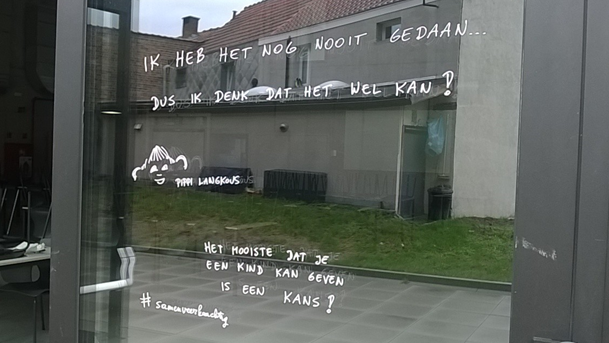 IK HEB HET NOG NOOIT GEDAAN...
DUS IK DENK DAT HET WEL KAN!
PIPPI LANGKOUS
HET MOOISTE DAT JE
EEN KIND KAN GEVEN
IS EEN KANS!
#samenveerkrachtig